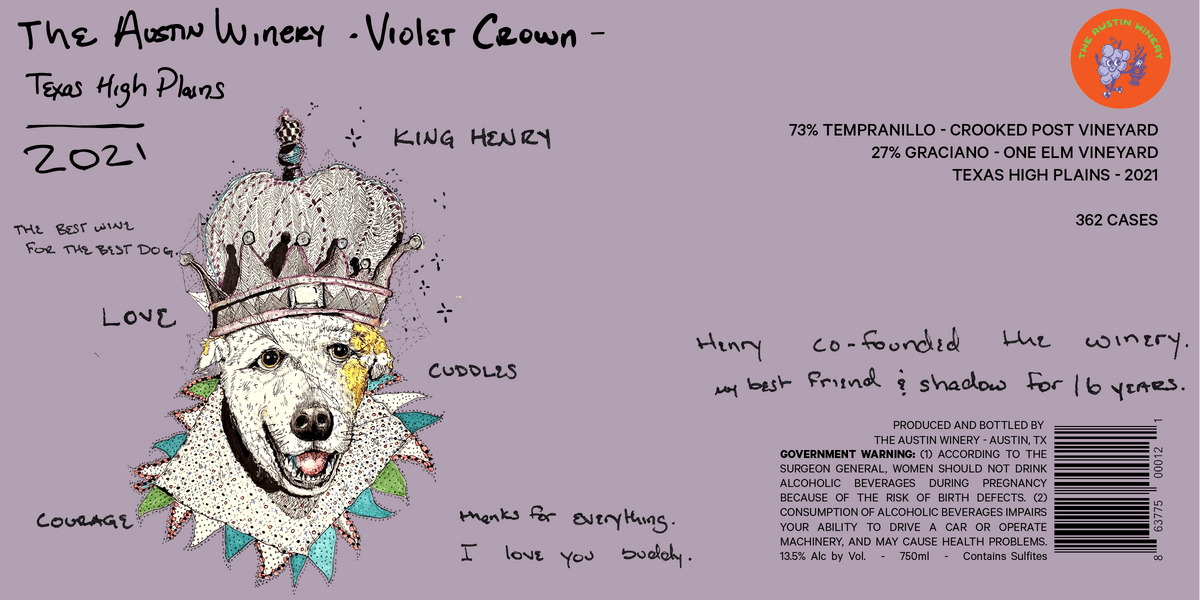 The Austin Winery - Violet Crown -
Texas High Plains
2021
KING HENRY
THE BEST WINE
FOR THE BEST DOG.
LOVE
CUDDLES
COURAGE
thanks for everything.
I love you buddy.
THE AUSTIN WINERY
73% TEMPRANILLO - CROOKED POST VINEYARD
27% GRACIANO - ONE ELM VINEYARD
TEXAS HIGH PLAINS - 2021
362 CASES
Henry co-founded the winery.
my best friend & shadow for 16 years.
PRODUCED AND BOTTLED BY
THE AUSTIN WINERY - AUSTIN, TX
GOVERNMENT WARNING: (1) ACCORDING TO THE
SURGEON GENERAL, WOMEN SHOULD NOT DRINK
ALCOHOLIC BEVERAGES DURING PREGNANCY
BECAUSE OF THE RISK OF BIRTH DEFECTS. (2)
CONSUMPTION OF ALCOHOLIC BEVERAGES IMPAIRS
YOUR ABILITY TO DRIVE A CAR OR OPERATE
MACHINERY, AND MAY CAUSE HEALTH PROBLEMS.
13.5% Alc by Vol. - 750ml - Contains Sulfites
8 63775 00012 1